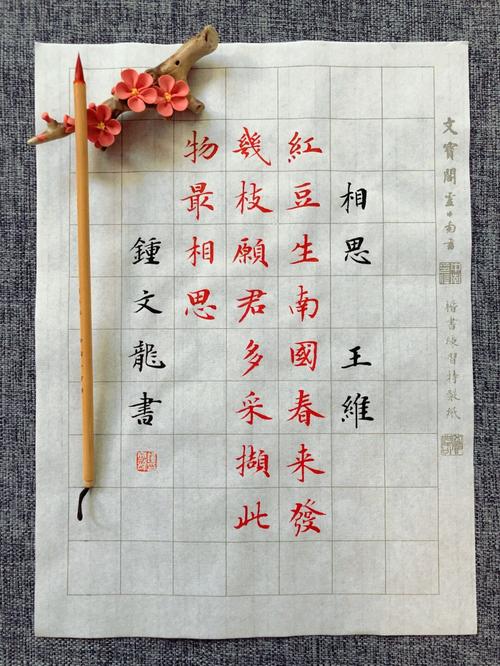 文寶閣
楷書練習特製紙
相思 王維
紅豆生南國春来發
幾枝願君多采擷此
物最相思
鍾文龍書